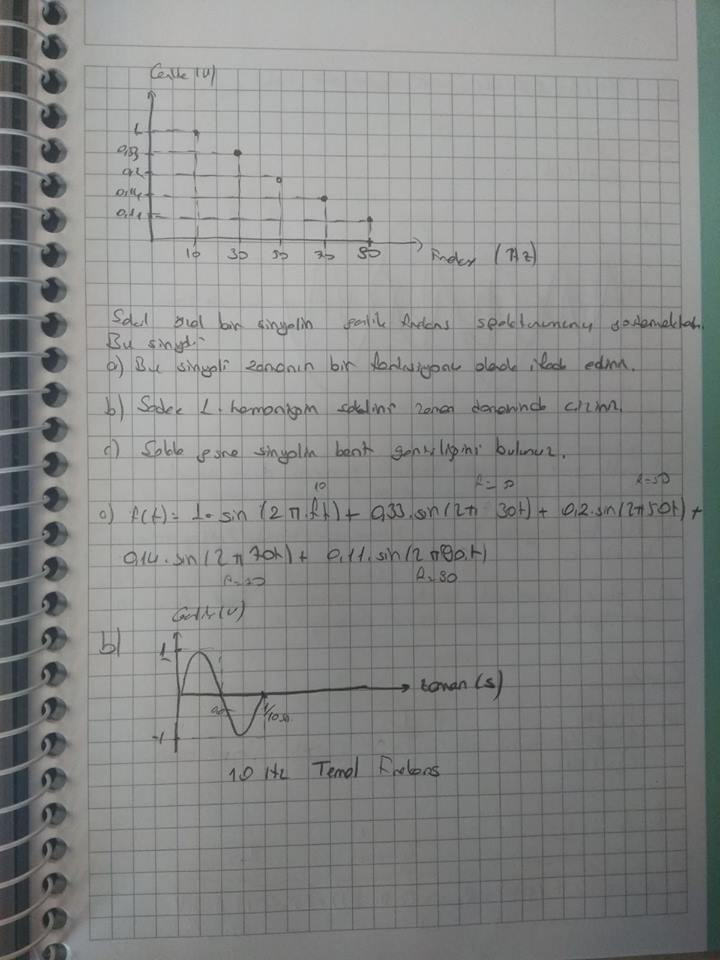 Genlik (V)
1
0,33
0,2
0,14
0,11
10 30 50 70 90 Frekans (Hz)
bir sinyalin genlik frekans spektrumunu göstermektedir.
Bu sinyali
a) Bu sinyali zamanın bir fonksiyonu olarak ifade ediniz.
b) Sadece 1. harmoniğin şeklini zaman domeninde çiziniz.
c) sinyalin bant genişliğini bulunuz.
10
a) f(t) = 1. sin (2π.ft) + 0,33.sin(2π 30t) + 0,2.sin(2π50t) +
0,14.sin(2π70t) + 0,11.sin(2π90.t)
Genlik (V)
b)
1
zaman (s)
-1
10 Hz Temel Frekans